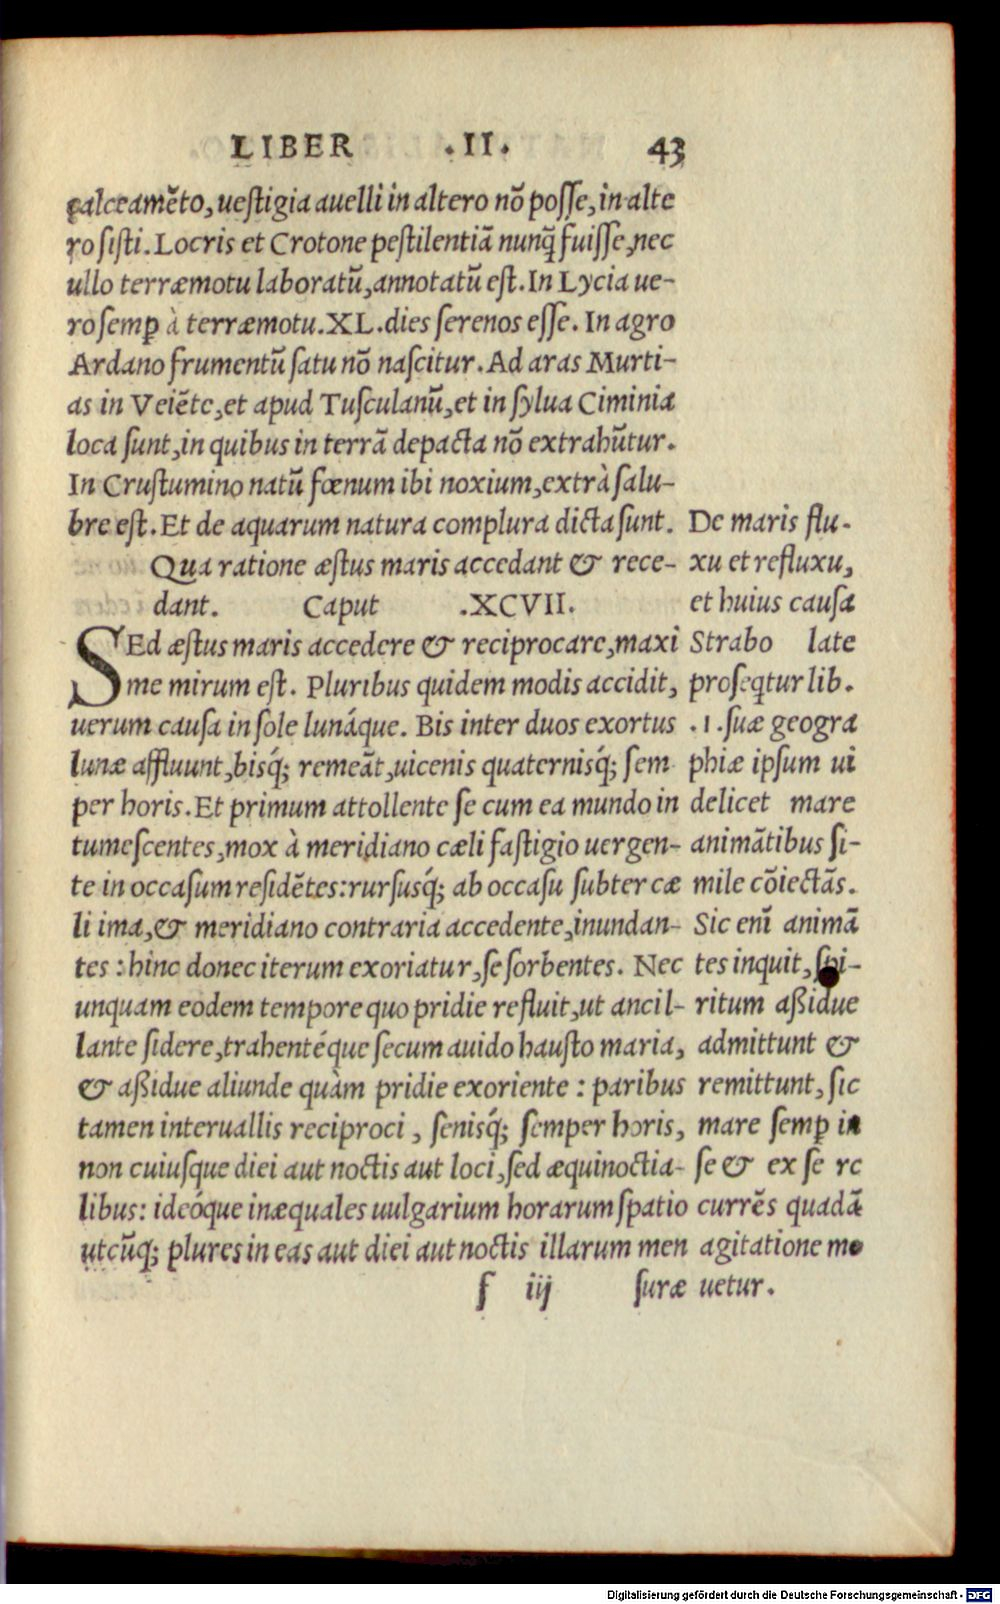 LIBER .II. 43
calceamẽto, uestigia auelli in altero nõ posse, in alte
ro sisti. Locris et Crotone pestilentiã nunq̃ fuisse, nec
ullo terræmotu laboratũ, annotatũ est. In Lycia ue-
ro semꝑ à terræmotu. XL. dies serenos esse. In agro
Ardano frumentũ satu nõ nascitur. Ad aras Murti-
as in Veiẽte, et apud Tusculanũ, et in sylua Ciminia
loca sunt, in quibus in terrã depacta nõ extrahũtur.
In Crustumino natũ fœnum ibi noxium, extrà salu-
bre est. Et de aquarum natura complura dicta sunt.
Qua ratione æstus maris accedant & rece-
dant. Caput .XCVII.
SEd æstus maris accedere & reciprocare, maxi
me mirum est. Pluribus quidem modis accidit,
uerum causa in sole lunáque. Bis inter duos exortus
lunæ affluunt, bisq́; remeãt, uicenis quaternisq́; sem
per horis. Et primum attollente se cum ea mundo in
tumescentes, mox à meridiano cæli fastigio uergen-
te in occasum residẽtes: rursusq́; ab occasu subter cæ
li ima, & meridiano contraria accedente, inundan-
tes: hinc donec iterum exoriatur, se sorbentes. Nec
unquam eodem tempore quo pridie refluit, ut ancil-
lante sidere, trahentéque secum auido hausto maria,
& aßidue aliunde quàm pridie exoriente: paribus
tamen interuallis reciproci, senisq́; semper horis,
non cuiusque diei aut noctis aut loci, sed æquinoctia-
libus: ideóque inæquales uulgarium horarum spatio
utcũq; plures in eas aut diei aut noctis illarum men
f iij suræ
De maris flu-
xu et refluxu,
et huius causa
Strabo late
proseq̃tur lib.
.1. suæ geogra
phiæ ipsum ui
delicet mare
animãtibus si-
mile cõiectãs.
Sic enĩ animã
tes inquit, spi-
ritum aßidue
admittunt &
remittunt, sic
mare semꝑ in
se & ex se re
currẽs quadã
agitatione mo
uetur.
Digitalisierung gefördert durch die Deutsche Forschungsgemeinschaft - DFG